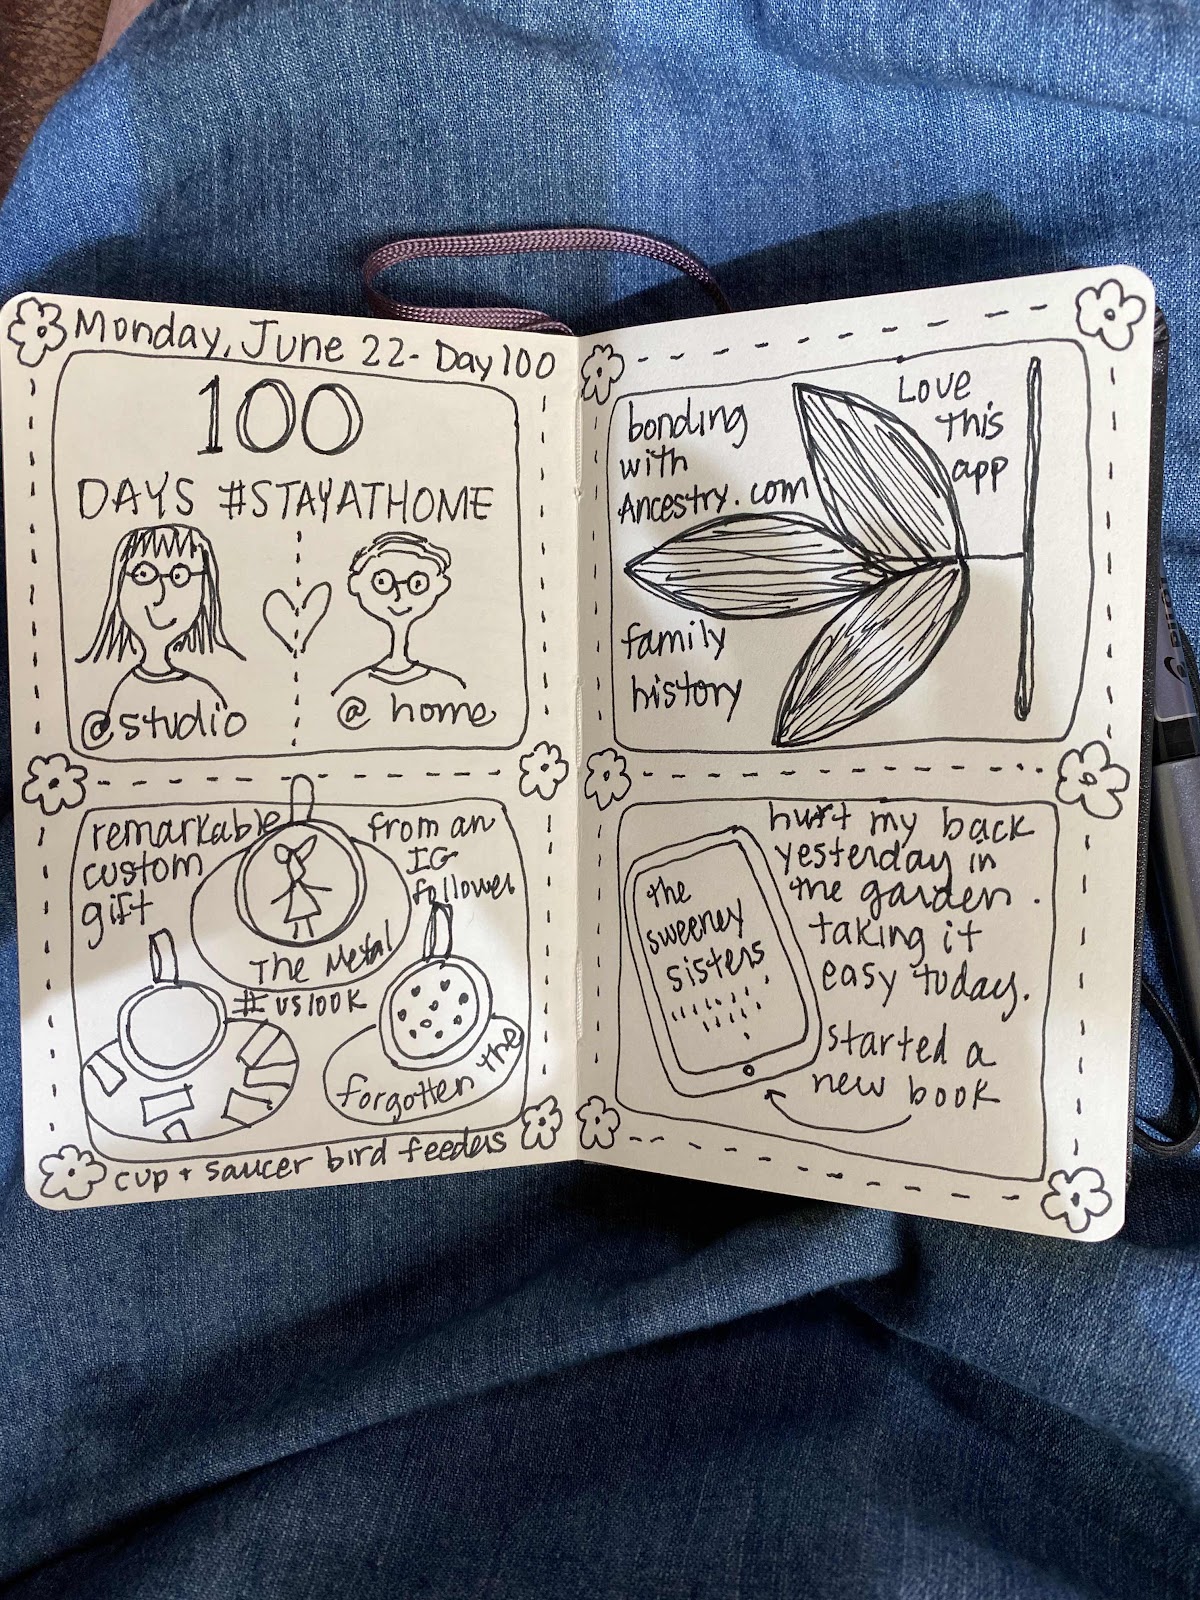 Monday, June 22 - Day 100
100
DAYS #STAYATHOME
@studio
@ home
remarkable
custom
gift
from an
IG
follower
The Metal
#IUS100K
forgotten the
cup + saucer bird feeders
bonding
with
Ancestry.com
Love
this
app
family
history
the
sweeney
sisters
hurt my back
yesterday in
the garden.
taking it
easy today.
started a
new book